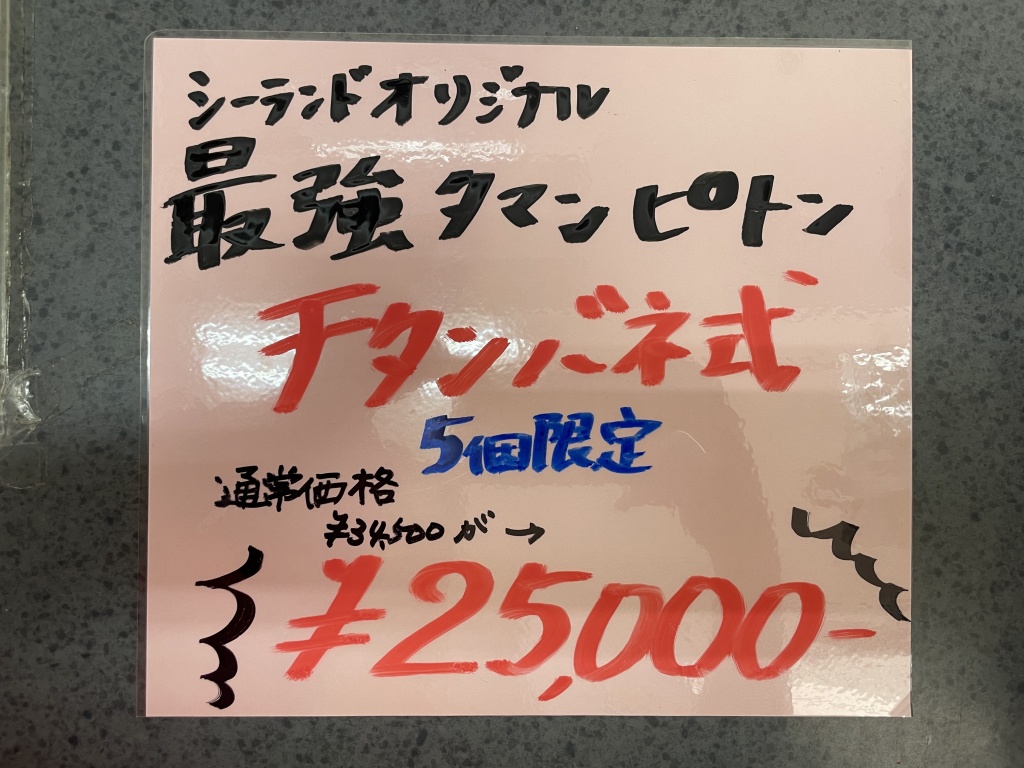 シーランドオリジナル
最強タマンピトン
チタンバネ式
5個限定
通常価格
¥34,500が→
¥25,000-